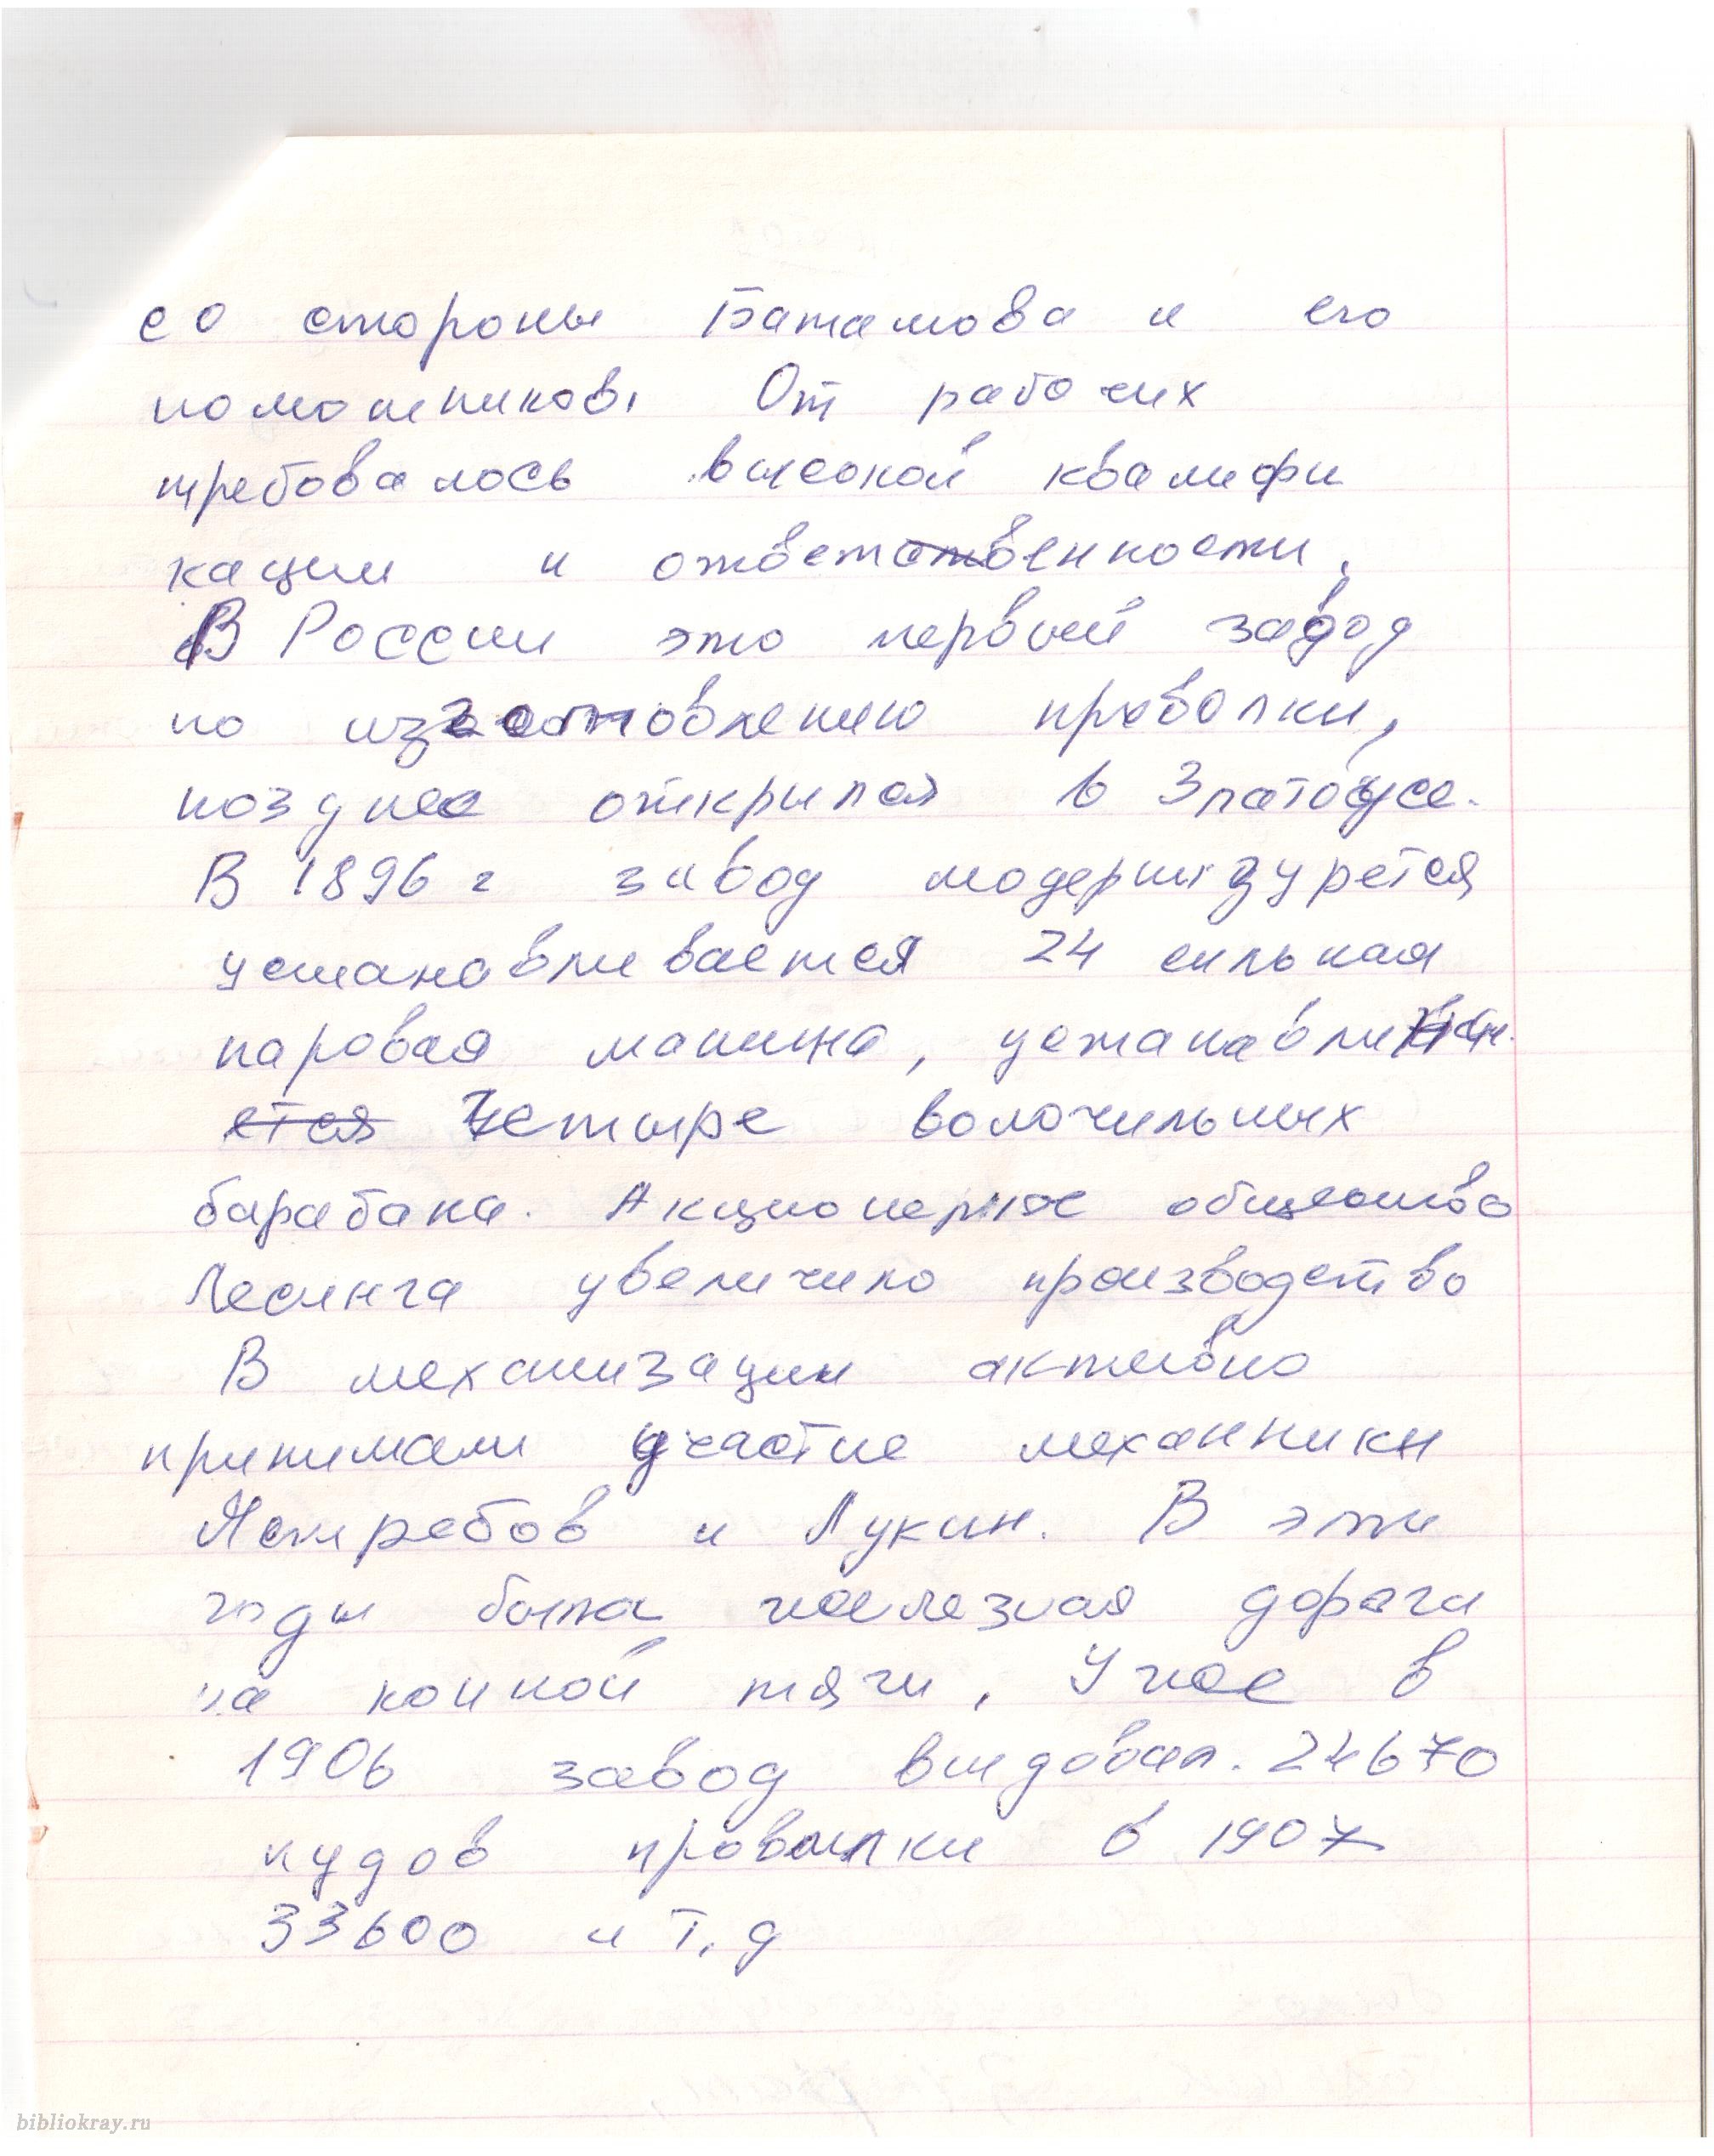 со стороны Баташова и его
помошников. От рабочих
требовалось высокой квалифи
кации и ответственности.
В России это первый завод
по изготовлению проволки,
позднее открылся в Златоусе.
В 1896 г завод модернизурется
устанавливается 24 сильная
паровая машина,
четыре волочильных
барабана. Акционерное общество
Лесинга увеличило производство
В механизации активно
принимали участие механники
Ястребов и Лукин. В эти
годы была железная дорога
на конной тяги, Уже в
1906 завод выдовал. 24670
пудов провылки в 1907
33600 и т. д
bibliokray.ru